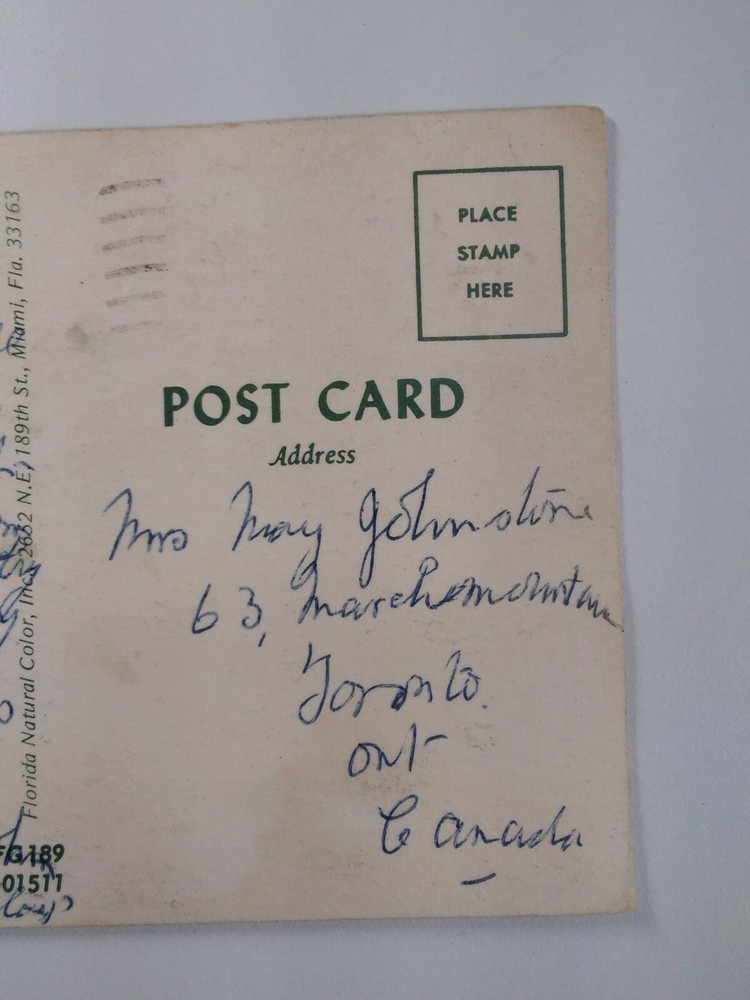 PLACE
STAMP
HERE
POST CARD
Address
Mrs May Johnstone
63,
Toronto
ont
Canada
Florida Natural Color, Inc. 2652 N.E. 189th St., Miami, Fla. 33163
FG 189
01511